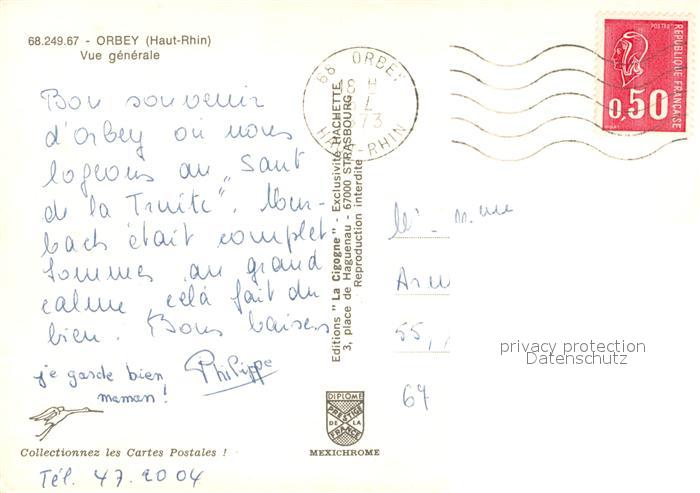 68.249.67 - ORBEY (Haut-Rhin)
Vue générale
Bon souvenir
d'Orbey où nous
logeons au „Saut
de la Truite". Mur-
bach était complet
Sommes au grand
calme, celà fait du
bien. Bons baisers
Philippe
je garde bien
maman!
Collectionnez les Cartes Postales !
Tél. 47.20 04
Editions "La Cigogne" - Exclusivité HACHETTE
3, place de Haguenau - 67000 STRASBOURG
Reproduction interdite
DIPLOME
PRESTIGE
DE LA
FRANCE
MEXICHROME
68 ORBEY
18 H
73
HAUT-RHIN
POSTES
REPUBLIQUE FRANÇAISE
0,50
55,
67
privacy protection
Datenschutz